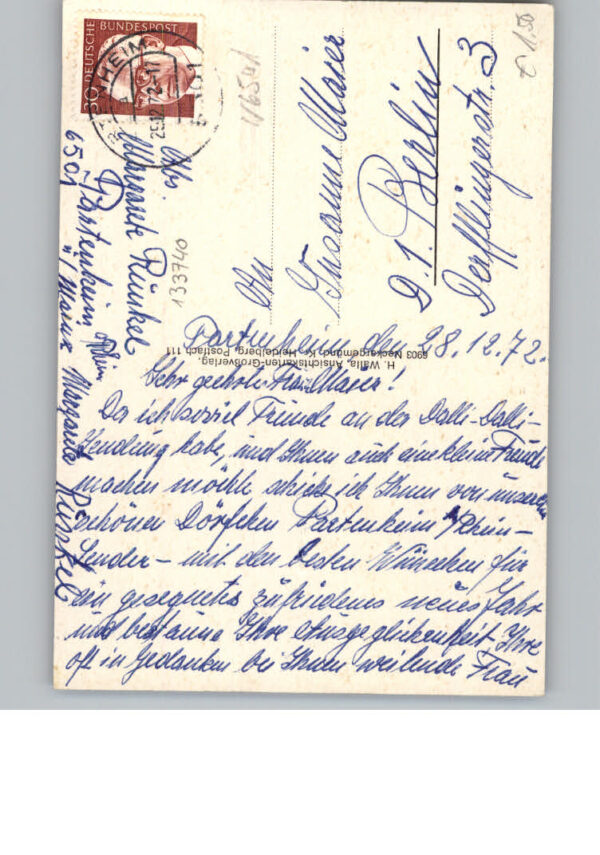 30 DEUTSCHE BUNDESPOST
PARTENHEIM
29.12.72-17
6501
116541
€ 1,50
133740
Abs.
Margarete Runkel
6501 Partenheim Rhh.
ü/ Mainz
An
Susanne Maier
D. 1. Berlin
Derfflingerstr. 3
H. Walla, Ansichtskarten-Großverlag,
6903 Neckargemünd, Kr. Heidelberg, Postfach 111
Partenheim, den 28.12.72.
Sehr geehrte Frau Maier!
Da ich soviel Freude an der Dalli-Dalli-
Sendung habe, und Ihnen auch eine kleine Freude
machen möchte schicke ich Ihnen von unserem
schönen Dörfchen Partenheim Rhein-
mit den besten Wünschen für
ein gesegnetes zufriedenes neues Jahr
und bestaune Ihre Ausgeglichenheit Ihre
oft in Gedanken bei Ihnen weilende Frau
Margarete Runkel